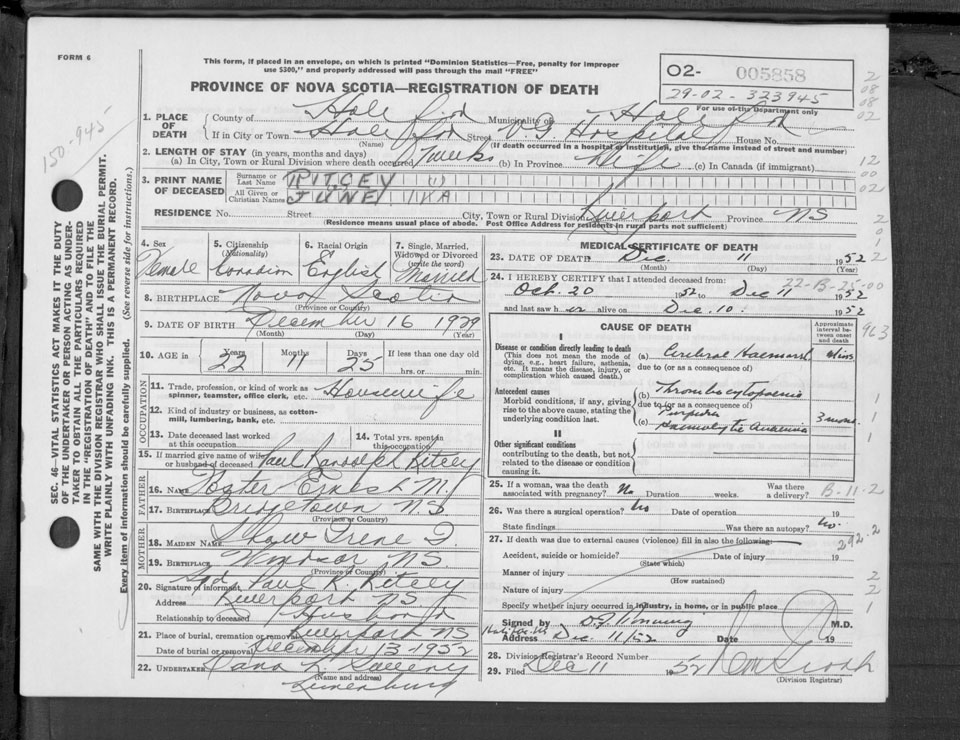 FORM 6
This form, if placed in an envelope, on which is printed "Dominion Statistics—Free, penalty for improper
use $300," and properly addressed will pass through the mail "FREE"
PROVINCE OF NOVA SCOTIA—REGISTRATION OF DEATH
O2- 005858
29-02-323945
For use of the Department only
150-945
SEC. 46—VITAL STATISTICS ACT MAKES IT THE DUTY
OF THE UNDERTAKER OR PERSON ACTING AS UNDER-
TAKER TO OBTAIN ALL THE PARTICULARS REQUIRED
IN THE "REGISTRATION OF DEATH" AND TO FILE THE
SAME WITH THE DIVISION REGISTRAR WHO SHALL ISSUE THE BURIAL PERMIT.
WRITE PLAINLY WITH UNFADING INK. THIS IS A PERMANENT RECORD.
Every item of information should be carefully supplied. (See reverse side for instructions.)
1. PLACE OF DEATH
County of Municipality of
If in City or Town Street V.G. Hospital House No.
(Name) (If death occurred in a hospital or institution, give the name instead of street and number)
2. LENGTH OF STAY (in years, months and days)
(a) In City, Town or Rural Division where death occurred 7 weeks (b) In Province Life (c) In Canada (if immigrant)
3. PRINT NAME OF DECEASED
Surname or Last Name RITCEY
All Given or Christian Names JUNE
RESIDENCE No. Street City, Town or Rural Division Riverport Province NS
(Residence means usual place of abode. Post Office Address for residents in rural parts not sufficient)
4. Sex Female
5. Citizenship (Nationality) Canadian
6. Racial Origin English
7. Single, Married, Widowed or Divorced (write the word) Married
8. BIRTHPLACE Nova Scotia
(Province or Country)
9. DATE OF BIRTH December 16 1929
(Month) (Day) (Year)
10. AGE in Years 22 Months 11 Days 25 If less than one day
hrs. or min.
OCCUPATION
11. Trade, profession, or kind of work as spinner, teamster, office clerk, etc. Housewife
12. Kind of industry or business, as cotton-mill, lumbering, bank, etc.
13. Date deceased last worked at this occupation
14. Total yrs. spent in this occupation
15. If married give name of wife or husband of deceased Paul Randolph Ritcey
FATHER
16. NAME Foster Ernest M.
17. BIRTHPLACE Bridgetown N.S
(Province or Country)
MOTHER
18. MAIDEN NAME Shaw Irene D.
19. BIRTHPLACE Windsor NS
(Province or Country)
20. Signature of informant Sgd Paul R. Ritcey
Address Riverport NS
Relationship to deceased Husband
21. Place of burial, cremation or removal Riverport NS
Date of burial or removal December 13-1952
22. UNDERTAKER Dana L. Sweeny
(Name and address)
Lunenburg
MEDICAL CERTIFICATE OF DEATH
23. DATE OF DEATH Dec. 11 1952
(Month) (Day) (Year)
24. I HEREBY CERTIFY that I attended deceased from:
22-B-25-00
Oct. 20 1952 to Dec 11 1952
and last saw her alive on Dec. 10. 1952
CAUSE OF DEATH
Approximate interval between onset and death
I
Disease or condition directly leading to death
(This does not mean the mode of dying, e.g., heart failure, asthenia, etc. It means the disease, injury, or complication which caused death.)
(a) Cerebral Haemorrh
due to (or as a consequence of)
Antecedent causes
Morbid conditions, if any, giving rise to the above cause, stating the underlying condition last.
(b) Thrombocytopenic
due to (or as a consequence of)
Purpura
(c) Haemolytic Anaemia 3 mons.
II
Other significant conditions
contributing to the death, but not related to the disease or condition causing it.
25. If a woman, was the death associated with pregnancy? No Duration weeks. Was there a delivery? B-11-2
26. Was there a surgical operation? No Date of operation 19
State findings Was there an autopsy? No.
27. If death was due to external causes (violence) fill in also the following:—
292.2
Accident, suicide or homicide? Date of injury 19
(State which)
Manner of injury
(How sustained)
Nature of injury
Specify whether injury occurred in industry, in home, or in public place
Signed by M.D.
Address Halifax NS Dec. 11/52 Date 19
28. Division Registrar's Record Number
29. Filed Dec 11 1952
(Division Registrar)